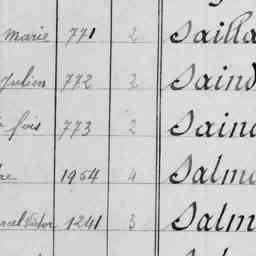 marie 771 2 Sailla
Julien 772 2 Saind
fois 773 2 Saind
re 1954 4 Salmo
rcel Victor 1241 3 Salm